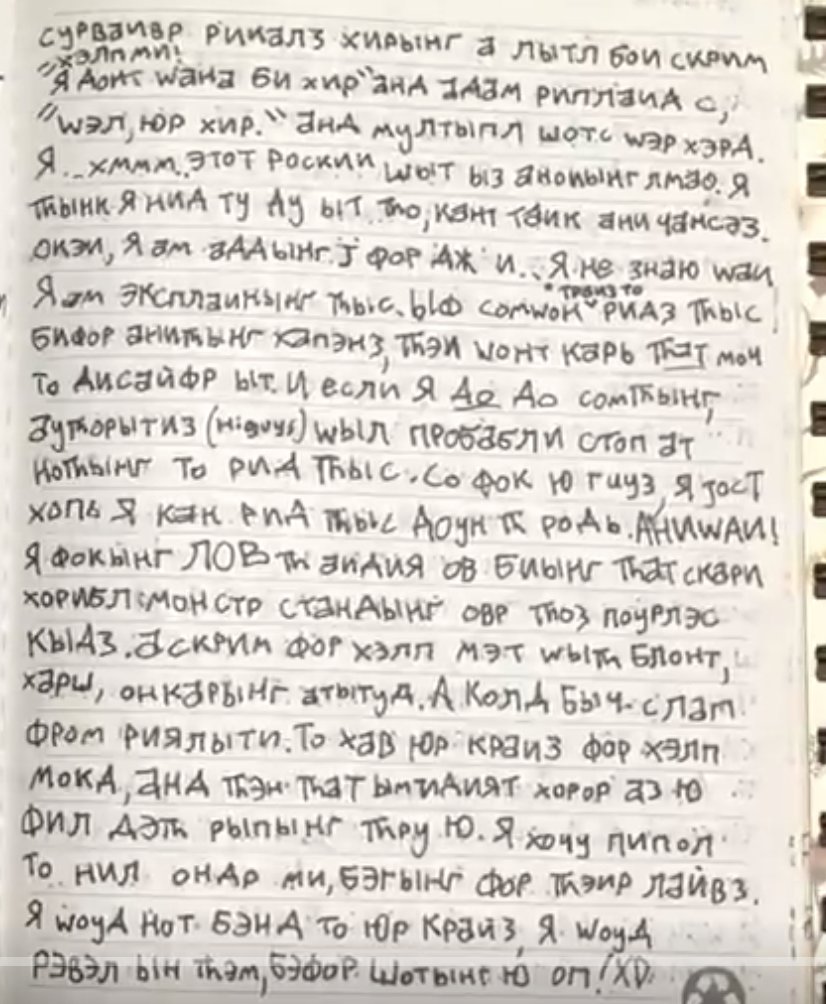 СУРВАИВР РИКАЛЗ ХИРЫНГ а ЛЫТЛ БОИ СКРИМ
"ХЭЛП МИ!
Я ДОНТ WАНа БИ ХИР" аНД аДаМ РИПЛаИД С,
"WЭЛ, ЮР ХИР." аНД МУЛТЫПЛ ШОТС WЭР ХЭРД.
Я... ХМММ. ЭТОТ РОСКИИ ШЫТ ЫЗ аНОИЫНГ ЛМаО. Я
ThЫНК Я НИД ТУ ДУ ЫТ ThО, КаНТ ТаИК аНИ ЧаНСЭЗ.
ОКЭИ, Я аМ аДДЫНГ J ФОР ДЖ И... Я НЕ ЗНАЮ WаИ
Я аМ ЭКСПЛаИНЫНГ ThЫС. ЫФ СОМWОН "ТРаИЗ ТО" РИДЗ ThЫС
БИФОР аНИThЫНГ ХаПЭНЗ, ThЭИ WОНТ КаРЬ ThаТ МОЧ
ТО ДИСаЙФР ЫТ. И ЕСЛИ Я ДО ДО СОМThЫНГ,
аУThОРЫТИЗ (Hi guys) WЫЛ ПРОБаБЛИ СТОП аТ
НОТhЫНГ ТО РИД ThЫС. СО ФОК Ю ГИУЗ, Я JОСТ
ХОПЬ Я КаН РИД ThЫС ДОУН Th РОДЬ. аНИWАИ!
Я ФОКЫНГ ЛОВ Th аИДИЯ ОВ БИЫНГ ThаТ СКаРИ
ХОРИБЛ МОНСТР СТаНДЫНГ ОВР ThОЗ ПОУРЛЭС
КЫДЗ. а СКРИМ ФОР ХЭЛП МЭТ WЫTh БЛОНТ,
ХаРШ, ОНКаРЫНГ аТЫТУД. А КОЛД БЫЧ-СЛаП
ФРОМ РИЯЛЫТИ. ТО ХаВ ЮР КРаИЗ ФОР ХЭЛП
МОКД, аНД ThЭН ThаТ ЫМИДИЯТ ХОРОР аЗ Ю
ФИЛ ДЭTh РЫПЫНГ ThРУ Ю. Я ХОЧУ ПИПОЛ
ТО НИЛ ОНДР МИ, БЭГЫНГ ФОР ThЭИР ЛАЙВЗ.
Я WОУД НОТ БЭНД ТО ЮР КРаЙЗ, Я WОУД
РЭВЭЛ ЫН ThЭМ, БЭФОР ШОТЫНГ Ю ОП! XD